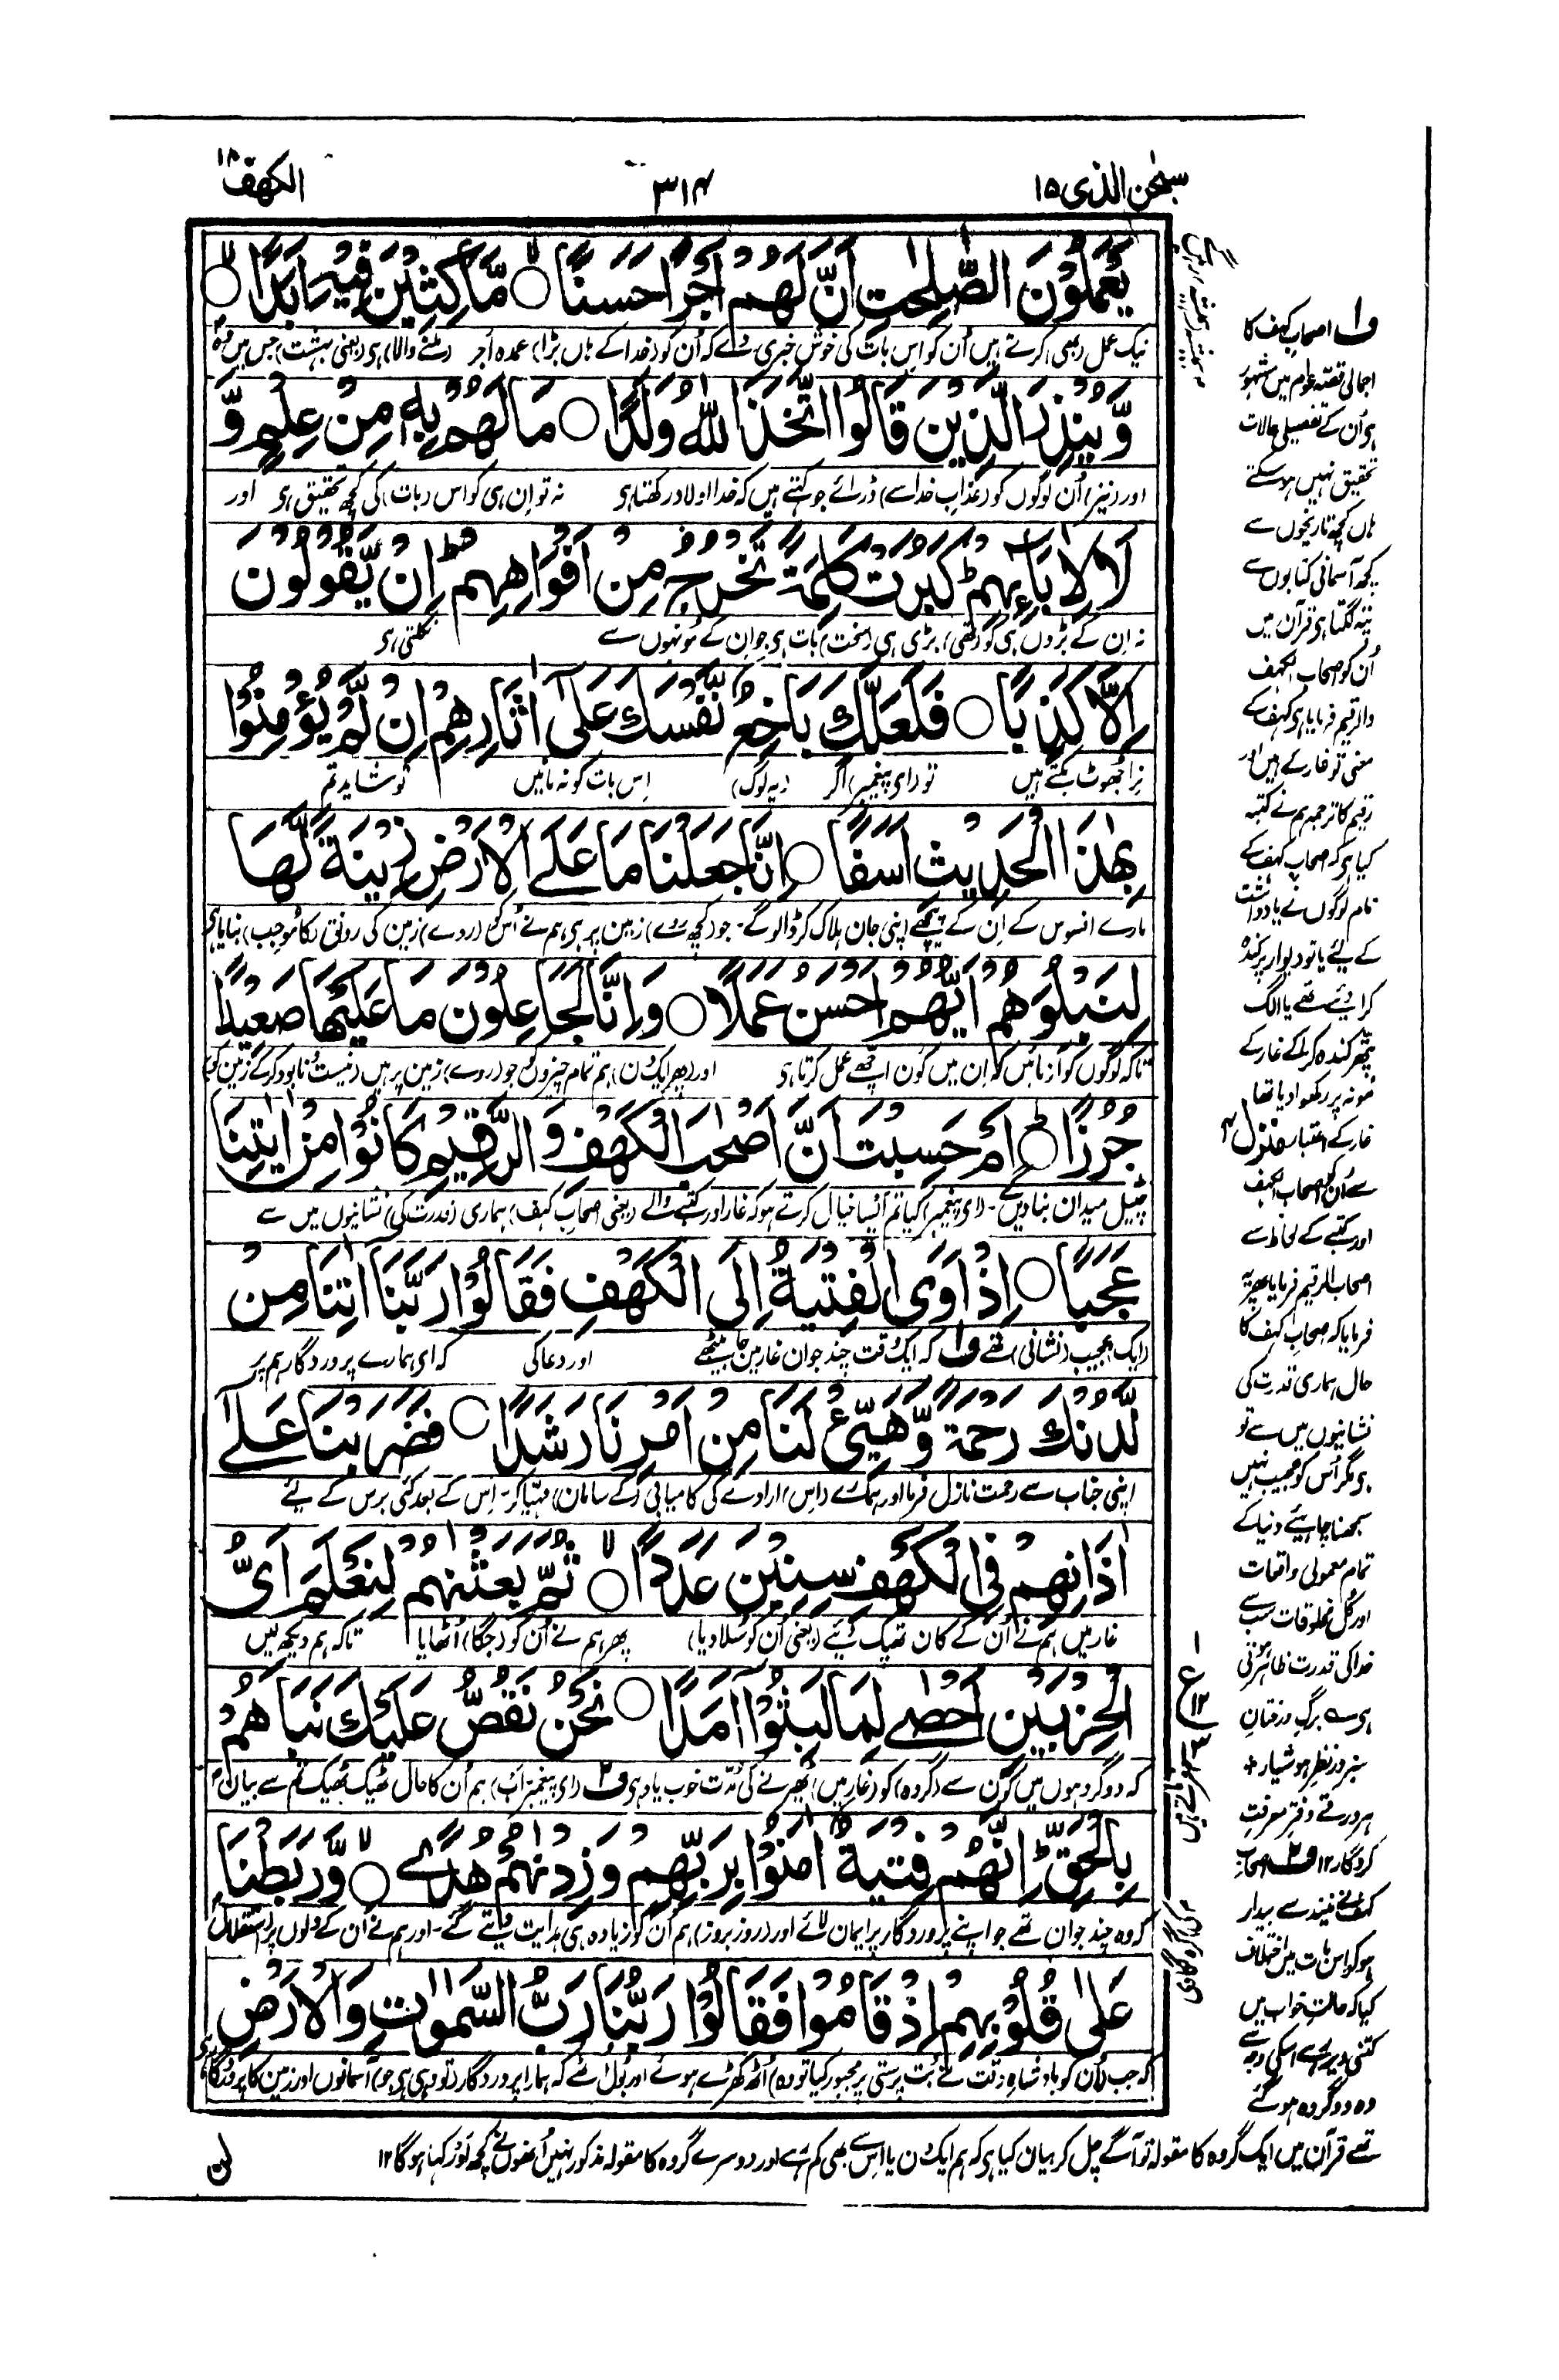 سبحٰن الذی ۱۵
۳۱۴
الکهف ۱۸
يَعْمَلُوْنَ الصّٰلِحٰتِ اَنَّ لَهُمْ اَجْرًا حَسَنًا ۙ مَّاكِثِيْنَ فِيْهِ اَبَدًا ۙ
نیک عمل (بھی) کرتے ہیں اُن کو اِس بات کی خوش خبری دے کہ اُن کو (خدا کے ہاں بڑا) عمدہ اجر (ملنے والا) ہی (یعنی بہشت) جس میں وہ
وَّيُنْذِرَ الَّذِيْنَ قَالُوا اتَّخَذَ اللّٰهُ وَلَدًا ○ مَا لَهُمْ بِهٖ مِنْ عِلْمٍ وَّ
اور (نیز) اُن لوگوں کو (عذابِ خدا سے) ڈرائے جو کہتے ہیں کہ خدا اولاد رکھتا ہی نہ تو اِن ہی کو اس (بات) کی کچھ تحقیق ہی اور
لَا لِاٰبَآئِهِمْ ؕ كَبُرَتْ كَلِمَةً تَخْرُجُ مِنْ اَفْوَاهِهِمْ ؕ اِنْ يَّقُوْلُوْنَ
نہ اِن کے بڑوں ہی کو (تھی) بڑی ہی (سخت) بات ہی جو ان کے مونہوں سے نکلتی ہی
اِلَّا كَذِبًا ○ فَلَعَلَّكَ بَاخِعٌ نَّفْسَكَ عَلٰٓى اٰثَارِهِمْ اِنْ لَّمْ يُؤْمِنُوْا
نِرا جھوٹ بکتے ہیں تو (ای پیغمبر) اگر (یہ لوگ) اِس بات کو نہ مانیں تو شاید تم
بِهٰذَا الْحَدِيْثِ اَسَفًا ○ اِنَّا جَعَلْنَا مَا عَلَى الْاَرْضِ زِيْنَةً لَّهَا
مارے افسوس کے اِن کے پیچھے اپنی جان ہلاک کر ڈالو گے۔ جو کچھ (روے) زمین پر ہی ہم نے اُس کو (روے) زمین کی رونق (کا موجب) بنایا ہی
لِنَبْلُوَهُمْ اَيُّهُمْ اَحْسَنُ عَمَلًا ○ وَاِنَّا لَجَاعِلُوْنَ مَا عَلَيْهَا صَعِيْدًا
تاکہ لوگوں کو آزمائیں کہ اِن میں کون اچھے عمل کرتا ہی اور (پھر ایک دن) ہم تمام چیزوں کو جو (روے) زمین پر ہیں (نیست و نابود کرکے) زمین کو
جُرُزًا ؕ اَمْ حَسِبْتَ اَنَّ اَصْحٰبَ الْكَهْفِ وَالرَّقِيْمِ كَانُوْا مِنْ اٰيٰتِنَا
چٹیل میدان بنادیں گے۔ (ای پیغمبر) کیا تم ایسا خیال کرتے ہو کہ غار اور کتبے والے (یعنی اصحابِ کہف) ہماری (قدرت کی) نشانیوں میں سے
عَجَبًا ○ اِذْ اَوَى الْفِتْيَةُ اِلَى الْكَهْفِ فَقَالُوْا رَبَّنَا اٰتِنَا مِنْ
(ایک) عجیب (نشانی) تھے ف۱ کہ ایک وقت چند جوان غار میں جا بیٹھے اور دعا کی کہ ای ہمارے پروردگار ہم پر
لَّدُنْكَ رَحْمَةً وَّهَيِّئْ لَنَا مِنْ اَمْرِنَا رَشَدًا ○ فَضَرَبْنَا عَلٰٓى
اپنی جناب سے رحمت نازل فرما اور ہمارے (اِس) ارادے کی کامیابی (کے سامان) مہیّا کر۔ اِس کے بعد کئی برس کے لیے
اٰذَانِهِمْ فِى الْكَهْفِ سِنِيْنَ عَدَدًا ۙ ثُمَّ بَعَثْنٰهُمْ لِنَعْلَمَ اَىُّ
غار میں ہم نے اُن کے کان تھپک دئیے (یعنی اُن کو سُلا دیا) پھر ہم نے اُن کو (جگا) اُٹھایا تاکہ ہم دیکھ لیں
الْحِزْبَيْنِ اَحْصٰى لِمَا لَبِثُوْٓا اَمَدًا ○ نَحْنُ نَقُصُّ عَلَيْكَ نَبَاَهُمْ
کہ دو گروہوں میں کون سے (گروہ) کو (غار میں) ٹھیرنے کی مدّت خوب یاد ہی ف۲ (ای پیغمبر اب) ہم اُن کا حال ٹھیک ٹھیک تم سے بیان
بِالْحَقِّ ؕ اِنَّهُمْ فِتْيَةٌ اٰمَنُوْا بِرَبِّهِمْ وَزِدْنٰهُمْ هُدًى ○ وَّرَبَطْنَا
کہ وہ چند جوان تھے جو اپنے پروردگار پر ایمان لائے اور (روز بروز) ہم اُن کو زیادہ ہی ہدایت دیتے گئے۔ اور ہم نے اُن کے دلوں پر
عَلٰى قُلُوْبِهِمْ اِذْ قَامُوْا فَقَالُوْا رَبُّنَا رَبُّ السَّمٰوٰتِ وَالْاَرْضِ
کہ جب (اُن کو بادشاہِ وقت نے بُت پرستی پر مجبور کیا تو وہ) اُٹھ کھڑے ہوئے اور بول اُٹھے کہ ہمارا پروردگار (تو وہی ہی جو) آسمانوں اور زمین کا پروردگار
ف۱ اصحابِ کہف کا
اجمالی قصہ عوام میں مشہور
ہی اُن کے تفصیلی حالات
تحقیق نہیں ہو سکتے
ہاں کچھ تاریخوں سے
کچھ آسمانی کتابوں سے
پتہ لگتا ہی قرآن میں
اُن کو اصحاب الکہف
والرقیم فرمایا ہی کہف کے
معنی تو غار کے ہیں اور
رقیم کا ترجمہ ہم نے کتبہ
کیا ہی کہ اصحابِ کہف کے
نام لوگوں نے یادداشت
کے لئے یا تو دیوار پر کندہ
کرا دئیے تھے یا الگ
پتھر کندہ کرا کے غار کے
مونہ پر رکھوا دیا تھا
غار کے اعتبار
منزل ۴
سے اُن کو اصحاب الکہف
اور کتبے کے لحاظ سے
اصحاب الرقیم فرمایا پھر یہ
فرمایا کہ اصحابِ کہف کا
حال ہماری قدرت کی
نشانیوں میں سے تو
ہی مگر اُس کو عجیب نہیں
سمجھنا چاہیئے دنیا کے
تمام معمولی واقعات
اور کُل مخلوقات سب سے
خدا کی قدرت ظاہر ہوتی
ہی ۔ برگ درختانِ
سبز در نظر ہوشیار ✦
ہر ورقے دفتر معرفتِ
کردگار ۱۲ ف۲ اصحاب
کہف نے نیند سے بیدار
ہو کر اس بات میں اختلاف
کیا کہ حالتِ خواب میں
کتنی دیر رہے اسکی وجہ سے
وہ دو گروہ ہو گئے
تھے قرآن میں ایک گروہ کا مقولہ تو آگے چل کر بیان کیا ہی کہ ہم ایک دن یا اس سے بھی کم رہے اور دوسرے گروہ کا مقولہ مذکور نہیں اُنھوں نے کچھ اَور کہا ہوگا ۱۲